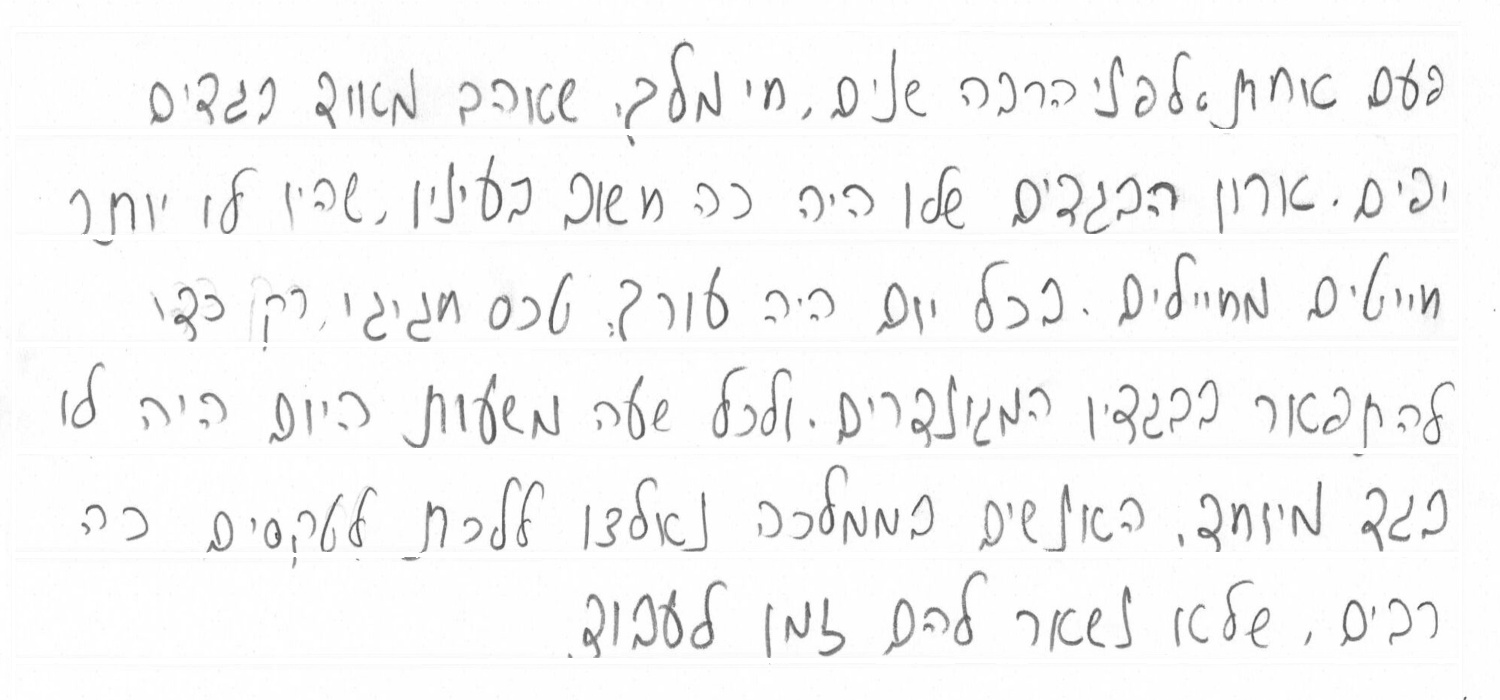 פעם אחת, לפני הרבה שנים, חי מלך, שאהב מאוד בגדים
יפים. ארון הבגדים שלו היה כה חשוב בעיניו, שהיו לו יותר
חייטים מחיילים. בכל יום היה עורך, טכס חגיגי, רק כדי
להתפאר בבגדיו המגונדרים. ולכל שעה משעות היום היה לו
בגד מיוחד. האנשים בממלכה נאלצו ללכת לטקסים כה
רבים, שלא נשאר להם זמן לעבוד.